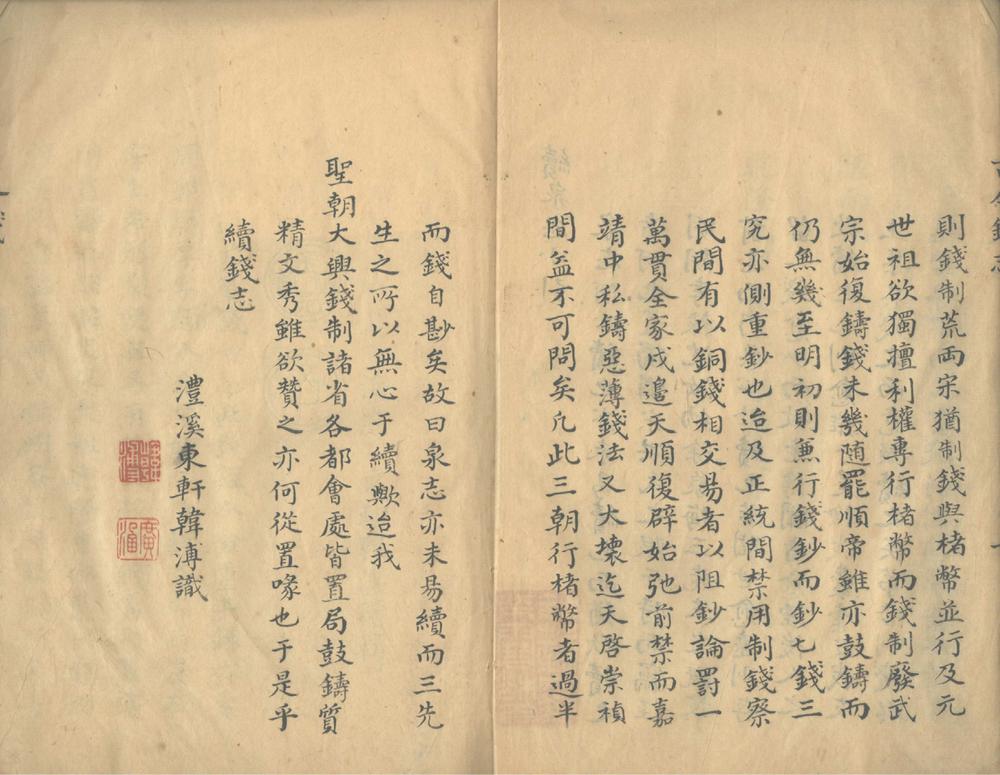 則錢制荒両宋猶制錢與楮幣並行及元
世祖欲獨擅利權專行楮幣而錢制廢武
宗始復鑄錢未幾随罷順帝雖亦鼓鑄而
仍無幾至明初則兼行錢鈔而鈔七錢三
究亦側重鈔也迨及正統間禁用制錢察
民間有以銅錢相交易者以阻鈔論罰一
萬貫全家戍邊天順復辟始弛前禁而嘉
靖中私鑄惡薄錢法又大壞迄天啓崇禎
間益不可問矣凢此三朝行楮幣者過半
而錢自尠矣故曰泉志亦未易續而三先
生之所以無心于續歟迨我
聖朝大興錢制諸省各都會處皆置局鼓鑄質
精文秀雖欲贊之亦何從置喙也于是乎
續錢志
澧溪東軒韓溥識